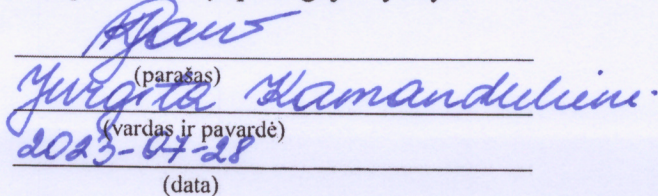 (parašas)
Jurgita Kamandulienė
(vardas ir pavardė)
2023-07-28
(data)